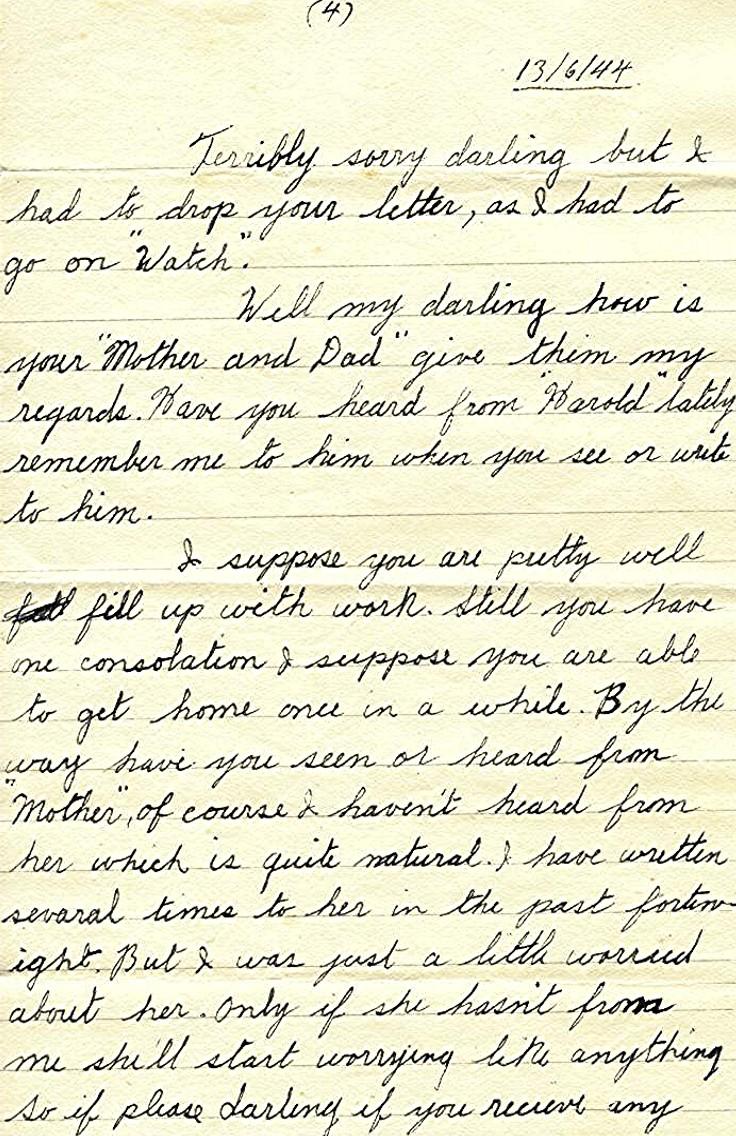 (4)
13/6/44
Terribly sorry darling but I
had to drop your letter, as I had to
go on "Watch".
Well my darling how is
your "Mother and Dad" give them my
regards. Have you heard from "Harold" lately
remember me to him when you see or write
to him.
I suppose you are pretty well
fill up with work. Still you have
one consolation I suppose you are able
to get home once in a while. By the
way have you seen or heard from
"Mother", of course I haven't heard from
her which is quite natural. I have written
sevaral times to her in the past fortn-
ight. But I was just a little worried
about her. Only if she hasn't from
me she'll start worrying like anything
So if please darling if you recieve any